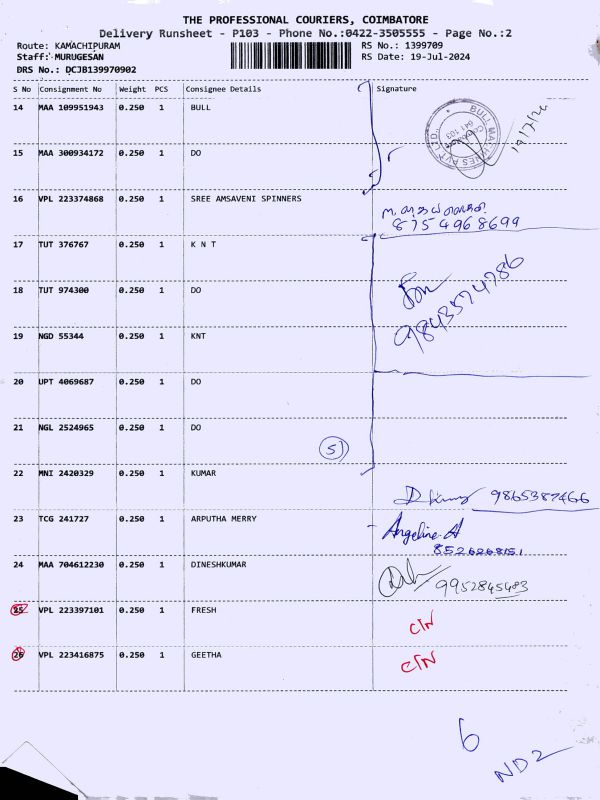 THE PROFESSIONAL COURIERS, COIMBATORE
Delivery Runsheet - P103 - Phone No.:0422-3505555 - Page No.:2
Route: KAMACHIPURAM
RS No.: 1399709
Staff: MURUGESAN
RS Date: 19-Jul-2024
DRS No.: DCJB139970902
S No Consignment No Weight PCS Consignee Details Signature
14 MAA 109951943 0.250 1 BULL
19/7/24
15 MAA 300934172 0.250 1 DO
16 VPL 223374868 0.250 1 SREE AMSAVENI SPINNERS
8754968699
17 TUT 376767 0.250 1 K N T
18 TUT 974300 0.250 1 DO
9843574786
19 NGD 55344 0.250 1 KNT
20 UPT 4069687 0.250 1 DO
21 NGL 2524965 0.250 1 DO
5
22 MNI 2420329 0.250 1 KUMAR
9865387466
23 TCG 241727 0.250 1 ARPUTHA MERRY
Angeline.A
8526268151
24 MAA 704612230 0.250 1 DINESHKUMAR
9952845483
25 VPL 223397101 0.250 1 FRESH
C/N
26 VPL 223416875 0.250 1 GEETHA
C/N
6
ND2